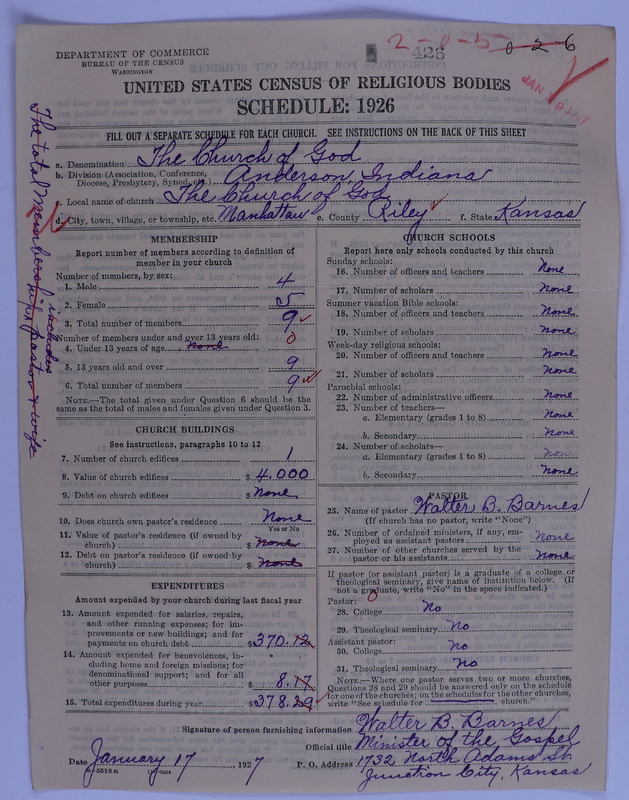 DEPARTMENT OF COMMERCE
BUREAU OF THE CENSUS
WASHINGTON
428
2-0-5- 026
JAN
UNITED STATES CENSUS OF RELIGIOUS BODIES
SCHEDULE: 1926
FILL OUT A SEPARATE SCHEDULE FOR EACH CHURCH. SEE INSTRUCTIONS ON THE BACK OF THIS SHEET
a. Denomination The Church of God
b. Division (Association, Conference, Diocese, Presbytery, Synod, etc.) Anderson, Indians
c. Local name of church The Church of God
d. City, town, village, or township, etc. Manhattan e. County Riley f. State Kansas
The total membership includes pastor & wife
MEMBERSHIP
Report number of members according to definition of
member in your church
Number of members, by sex:
1. Male 4
2. Female 5
3. Total number of members 9
Number of members under and over 13 years old: 0
4. Under 13 years of age None
5. 13 years old and over 9
6. Total number of members 9
NOTE.—The total given under Question 6 should be
same as the total of males and females given under Question 3.
CHURCH BUILDINGS
See instructions, paragraphs 10 to 12
7. Number of church edifices 1
8. Value of church edifices $ 4.000
9. Debt on church edifices $ None
10. Does church own pastor's residence None
Yes or No
11. Value of pastor's residence (if owned by
church) $ None
12. Debt on pastor's residence (if owned by
church) $ None
EXPENDITURES
Amount expended by your church during last fiscal year
13. Amount expended for salaries, repairs,
and other running expenses; for im-
provements or new buildings; and for
payments on church debt $ 370.12
14. Amount expended for benevolences, in-
cluding home and foreign missions; for
denominational support; and for all
other purposes $ 8.17
15. Total expenditures during year $ 378.29
CHURCH SCHOOLS
Report here only schools conducted by this church
Sunday schools:
16. Number of officers and teachers None
17. Number of scholars None
Summer vacation Bible schools:
18. Number of officers and teachers None
19. Number of scholars None
Week-day religious schools:
20. Number of officers and teachers None
21. Number of scholars None
Parochial schools:
22. Number of administrative officers None
23. Number of teachers—
a. Elementary (grades 1 to 8) None
b. Secondary None
24. Number of scholars—
a. Elementary (grades 1 to 8) None
b. Secondary None
PASTOR
25. Name of pastor Walter B. Barnes
(If church has no pastor, write "None")
26. Number of ordained ministers, if any, em-
ployed as assistant pastors None
27. Number of other churches served by the
pastor or his assistants None
If pastor (or assistant pastor) is a graduate of a college or
theological seminary, give name of institution below. (If
not a graduate, write "No" in the space indicated.)
Pastor: 0
28. College No
29. Theological seminary No
Assistant pastor:
30. College No
31. Theological seminary No
NOTE.—Where one pastor serves two or more churches,
Questions 28 and 29 should be answered only on the schedule
for one of the churches; on the schedules for the other churches,
write "See schedule for church."
Signature of person furnishing information Walter B. Barnes
Official title Minister of the Gospel
Date January 17 1927 P. O. Address 1732 North Adams St.
Junction City, Kansas